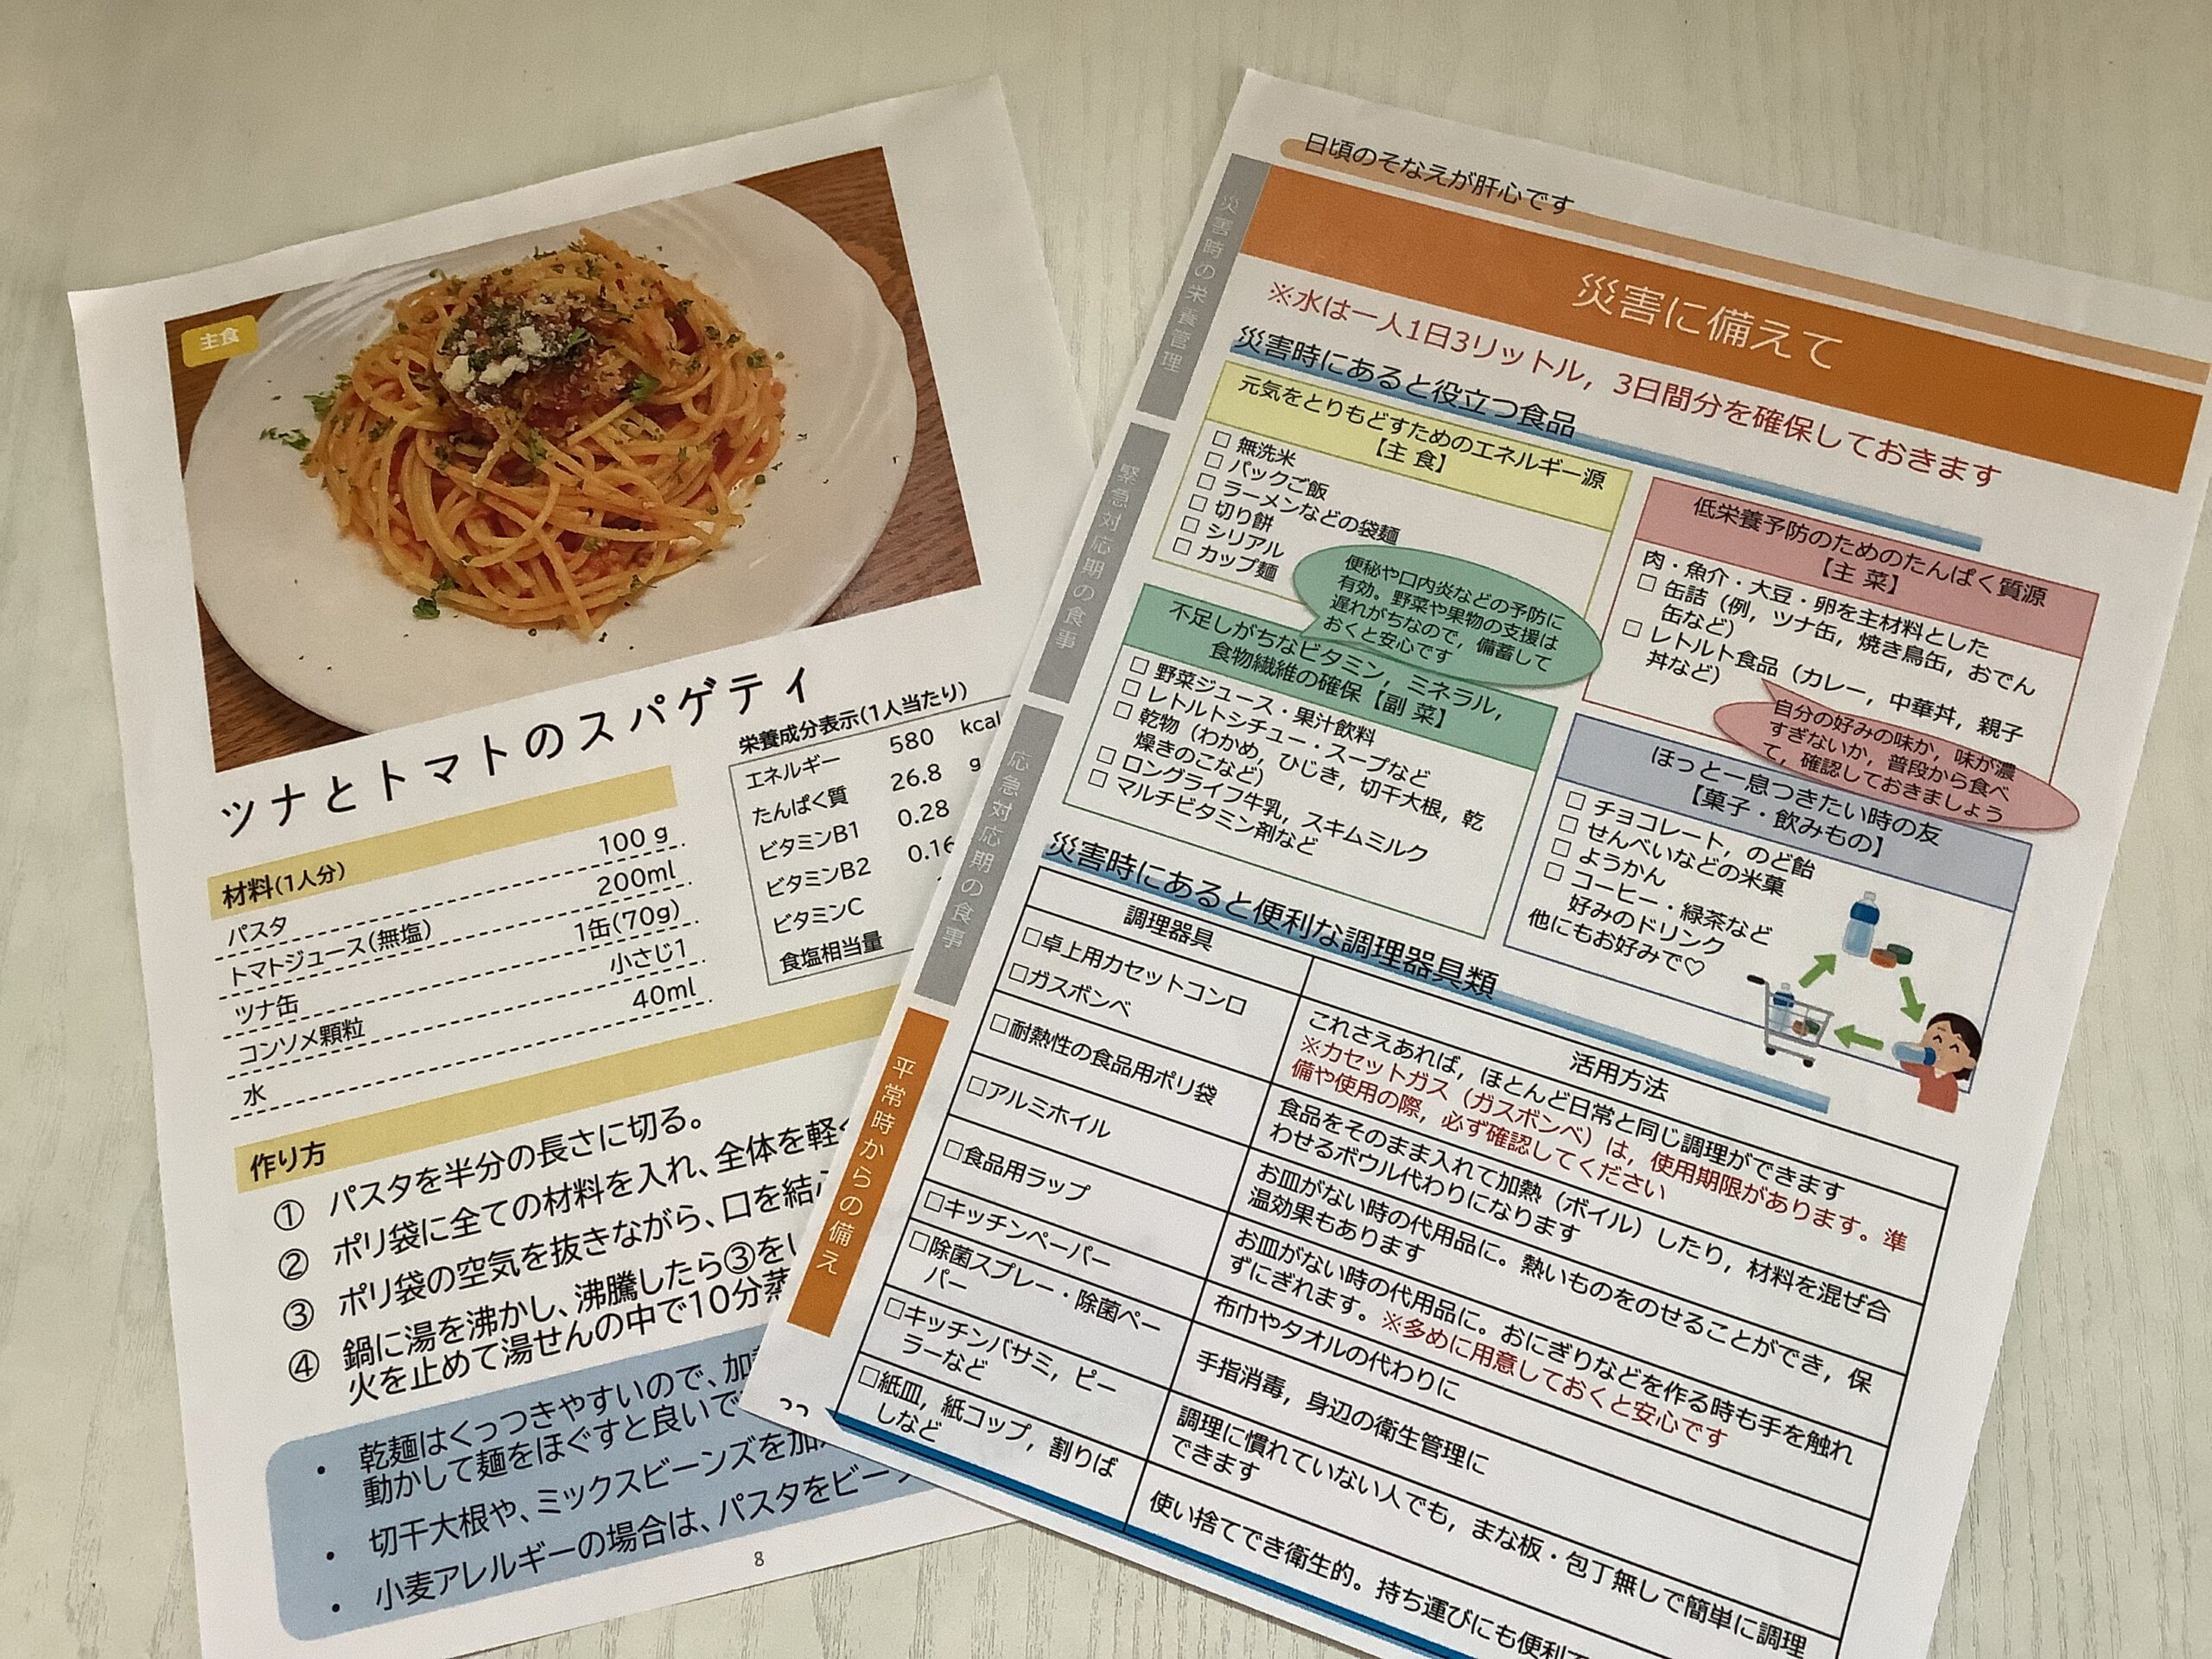 主食
ツナとトマトのスパゲティ
材料(1人分)
パスタ 100g
トマトジュース(無塩) 200ml
ツナ缶 1缶(70g)
コンソメ顆粒 小さじ1
水 40ml
栄養成分表示(1人当たり)
エネルギー 580 kcal
たんぱく質 26.8 g
ビタミンB1 0.28
ビタミンB2 0.16
ビタミンC
食塩相当量
作り方
① パスタを半分の長さに切る。
② ポリ袋に全ての材料を入れ、全体を軽く
③ ポリ袋の空気を抜きながら、口を結
④ 鍋に湯を沸かし、沸騰したら③を
火を止めて湯せんの中で10分蒸
・ 乾麺はくっつきやすいので、加
動かして麺をほぐすと良いで
・ 切干大根や、ミックスビーンズを加
・ 小麦アレルギーの場合は、パスタをビーフ
8
日頃のそなえが肝心です
災害に備えて
災害時の栄養管理
緊急対応期の食事
応急対応期の食事
平常時からの備え
※水は一人1日3リットル，3日間分を確保しておきます
災害時にあると役立つ食品
元気をとりもどすためのエネルギー源
【主 食】
□ 無洗米
□ パックご飯
□ ラーメンなどの袋麺
□ 切り餅
□ シリアル
□ カップ麺
低栄養予防のためのたんぱく質源
【主 菜】
肉・魚介・大豆・卵を主材料とした
□ 缶詰（例，ツナ缶，焼き鳥缶，おでん
缶など）
□ レトルト食品（カレー，中華丼，親子
丼など）
便秘や口内炎などの予防に
有効。野菜や果物の支援は
遅れがちなので，備蓄して
おくと安心です
自分の好みの味か，味が濃
すぎないか，普段から食べ
て，確認しておきましょう
不足しがちなビタミン，ミネラル，
食物繊維の確保【副 菜】
□ 野菜ジュース・果汁飲料
□ レトルトシチュー・スープなど
□ 乾物（わかめ，ひじき，切干大根，乾
燥きのこなど）
□ ロングライフ牛乳，スキムミルク
□ マルチビタミン剤など
ほっと一息つきたい時の友
【菓子・飲みもの】
□ チョコレート，のど飴
□ せんべいなどの米菓
□ ようかん
□ コーヒー・緑茶など
好みのドリンク
他にもお好みで♡
災害時にあると便利な調理器具類
調理器具 活用方法
□卓上用カセットコンロ
□ガスボンベ
これさえあれば，ほとんど日常と同じ調理ができます
※カセットガス（ガスボンベ）は，使用期限があります。準
備や使用の際，必ず確認してください
□耐熱性の食品用ポリ袋
食品をそのまま入れて加熱（ボイル）したり，材料を混ぜ合
わせるボウル代わりになります
□アルミホイル
お皿がない時の代用品に。熱いものをのせることができ，保
温効果もあります
□食品用ラップ
お皿がない時の代用品に。おにぎりなどを作る時も手を触れ
ずにぎれます。※多めに用意しておくと安心です
□キッチンペーパー
布巾やタオルの代わりに
□除菌スプレー・除菌ペー
パー
手指消毒，身辺の衛生管理に
□キッチンバサミ，ピー
ラーなど
調理に慣れていない人でも，まな板・包丁無しで簡単に調理
できます
□紙皿，紙コップ，割りば
しなど
使い捨てでき衛生的。持ち運びにも便利